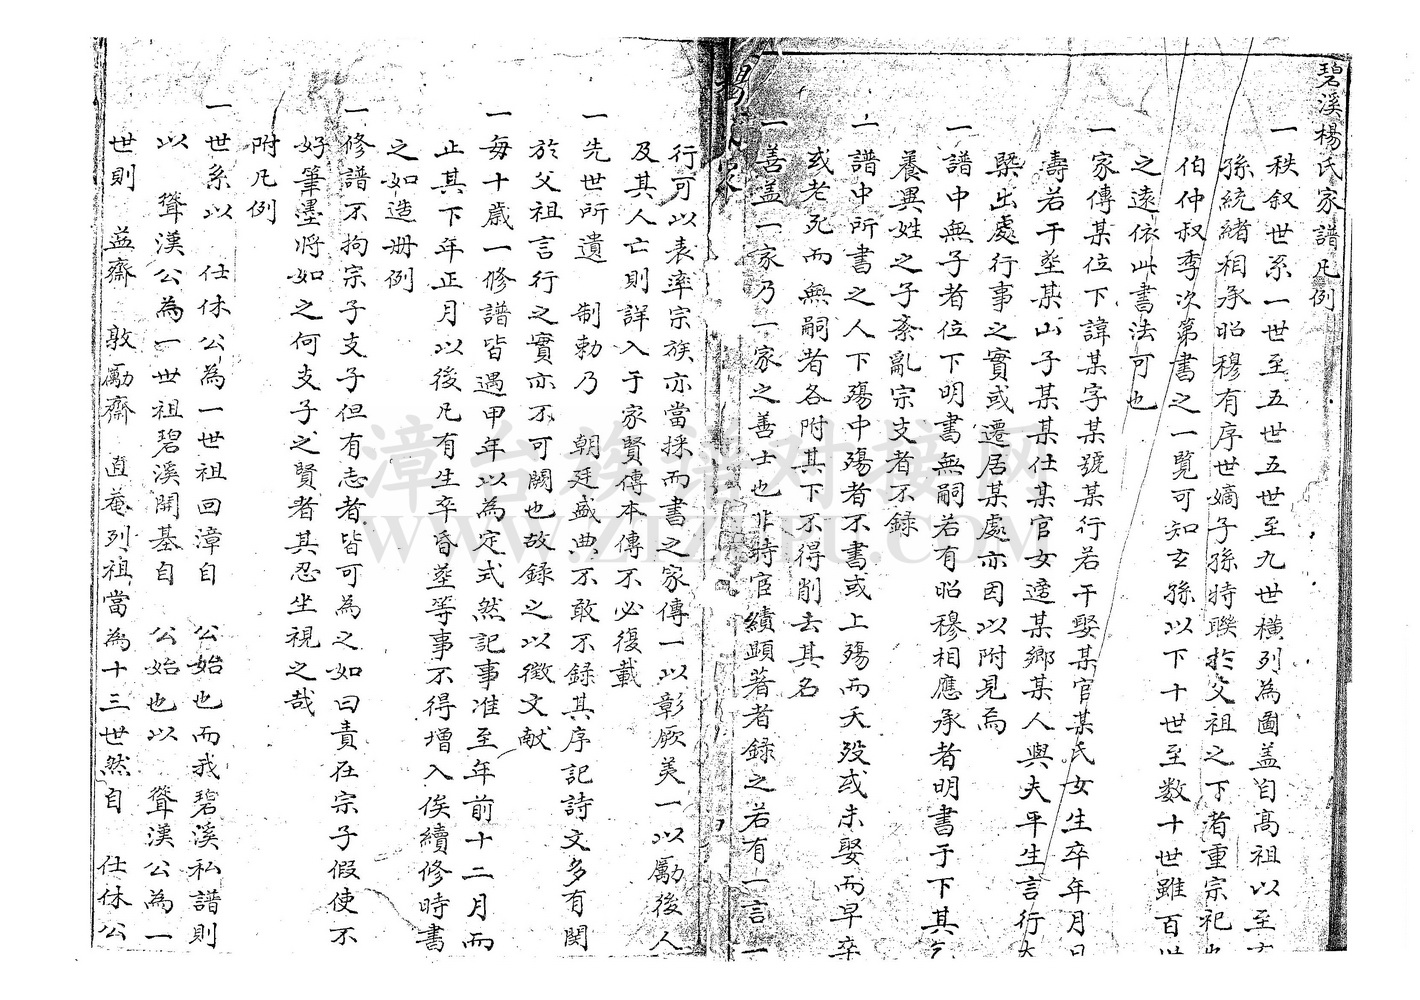 碧溪楊氏家譜凡例
一秩叙世系一世至五世五世至九世橫列為圖盖自高祖以至
孫統緒相承昭穆有序世嫡子孫特聯扵父祖之下者重宗祀也
伯仲叔季次第書之一覽可知玄孫以下十世至数十世雖百世
之遠依此書法可也
一家傳某位下諱某字某號某行若干娶某官某氏女生卒年月日
壽若干塟某山子某某仕某官女適某鄉某人與夫平生言行大
槩出處行事之實或遷居某處亦因以附見焉
一譜中無子者位下明書無嗣若有昭穆相應承者明書于下其
養異姓之子紊亂宗支者不録
一譜中所書之人下殤中殤者不書或上殤而夭殁或未娶而早卒
或老死而無嗣者各附其下不得削去其名
一善盖一家乃一家之善士也非特宦績顯著者録之若有一言一
楊氏家
行可以表率宗族亦當採而書之家傳一以彰厥美一以勵後人
及其人亡則詳入于家賢傳本傳不必復載
一先世所遺 制勅乃 朝廷盛典不敢不録其序記詩文多有関
於父祖言行之實亦不可闕也故録之以徵文献
一每十歲一修譜皆遇甲年以為定式然記事准至年前十二月而
止其下年正月以後凡有生卒昏塟等事不得增入俟續修時書
之如造册例
一修譜不拘宗子支子但有志者皆可為之如曰責在宗子假使不
好筆墨將如之何支子之賢者其忍坐視之哉
附凡例
一世系以 仕休公為一世祖回漳自 公始也而我碧溪私譜則
以 聳漢公為一世祖碧溪開基自 公始也以 聳漢公為一
世則 益齋 敦勵齋 直菴列祖當為十三世然自 仕休公
漳台族谱对接网
WWW.ZTZUPU.COM